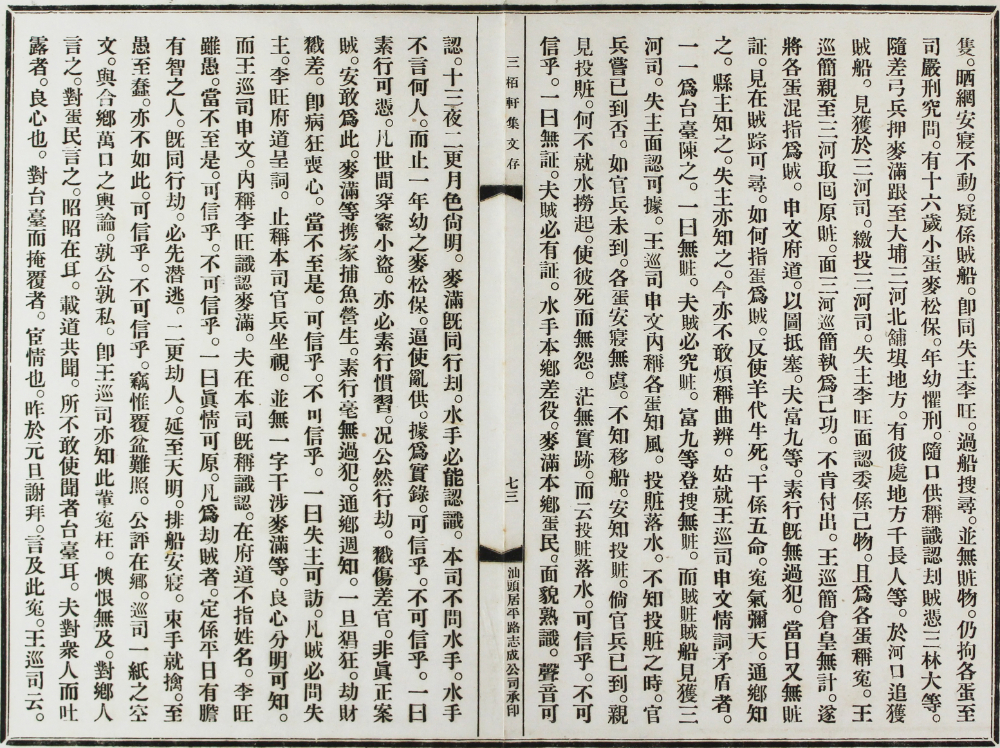 隻。晒網安寢不動。疑係賊船。卽同失主李旺。過船搜尋。並無賍物。仍拘各蛋至
司嚴刑究問。有十六歲小蛋麥松保。年幼懼刑。隨口供稱識認刦賊憑三林大等。
隨差弓兵押麥滿跟至大埔三河北舖埧地方。有彼處地方千長人等。於河口追獲
賊船。見獲於三河司。繳投三河司。失主李旺面認委係己物。且爲各蛋稱寃。王
巡簡親至三河取囘原賍。面三河巡簡執爲己功。不肯付出。王巡簡倉皇無計。遂
將各蛋混指爲賊。申文府道。以圖抵塞。夫富九等。素行旣無過犯。當日又無賍
証。見在賊踪可尋。如何指蛋爲賊。反使羊代牛死。干係五命。寃氣彌天。通鄉知
之。縣主知之。失主亦知之。今亦不敢煩稱曲辨。姑就王巡司申文情詞矛盾者。
一一爲台臺陳之。一曰無賍。夫賊必究賍。富九等登搜無賍。而賊賍賊船見獲三
河司。失主面認可據。王巡司申文內稱各蛋知風。投賍落水。不知投賍之時。官
兵嘗已到否。如官兵未到。各蛋安寢無虞。不知移船。安知投賍。倘官兵已到。親
見投賍。何不就水撈起。使彼死而無怨。茫無實跡。而云投賍落水。可信乎。不可
信乎。一曰無証。夫賊必有証。水手本鄉差役。麥滿本鄉蛋民。面貌熟識。聲音可
三栢軒集文存
七三
汕頭居平路志成公司承印
認。十三夜二更月色尙明。麥滿旣同行刦。水手必能認識。本司不問水手。水手
不言何人。而止一年幼之麥松保。逼使亂供。據爲實錄。可信乎。不可信乎。一曰
素行可憑。凡世間穿窬小盜。亦必素行慣習。况公然行劫。戳傷差官。非眞正案
賊。安敢爲此。麥滿等携家捕魚營生。素行毫無過犯。通鄉週知。一旦猖狂。劫財
戳差。卽病狂喪心。當不至是。可信乎。不可信乎。一曰失主可訪。凡賊必問失
主。李旺府道呈詞。止稱本司官兵坐視。並無一字干涉麥滿等。良心分明可知。
而王巡司申文。內稱李旺識認麥滿。夫在本司旣稱識認。在府道不指姓名。李旺
雖愚。當不至是。可信乎。不可信乎。一曰眞情可原。凡爲劫賊者。定係平日有膽
有智之人。旣同行劫。必先潛逃。二更劫人。延至天明。排船安寢。束手就擒。至
愚至蠢。亦不如此。可信乎。不可信乎。竊惟覆盆難照。公評在鄉。巡司一紙之空
文。與合鄉萬口之輿論。孰公孰私。卽王巡司亦知此輩寃枉。懊恨無及。對鄉人
言之。對蛋民言之。昭昭在耳。載道共聞。所不敢使聞者台臺耳。夫對衆人而吐
露者。良心也。對台臺而掩覆者。宦情也。昨於元旦謝拜。言及此寃。王巡司云。